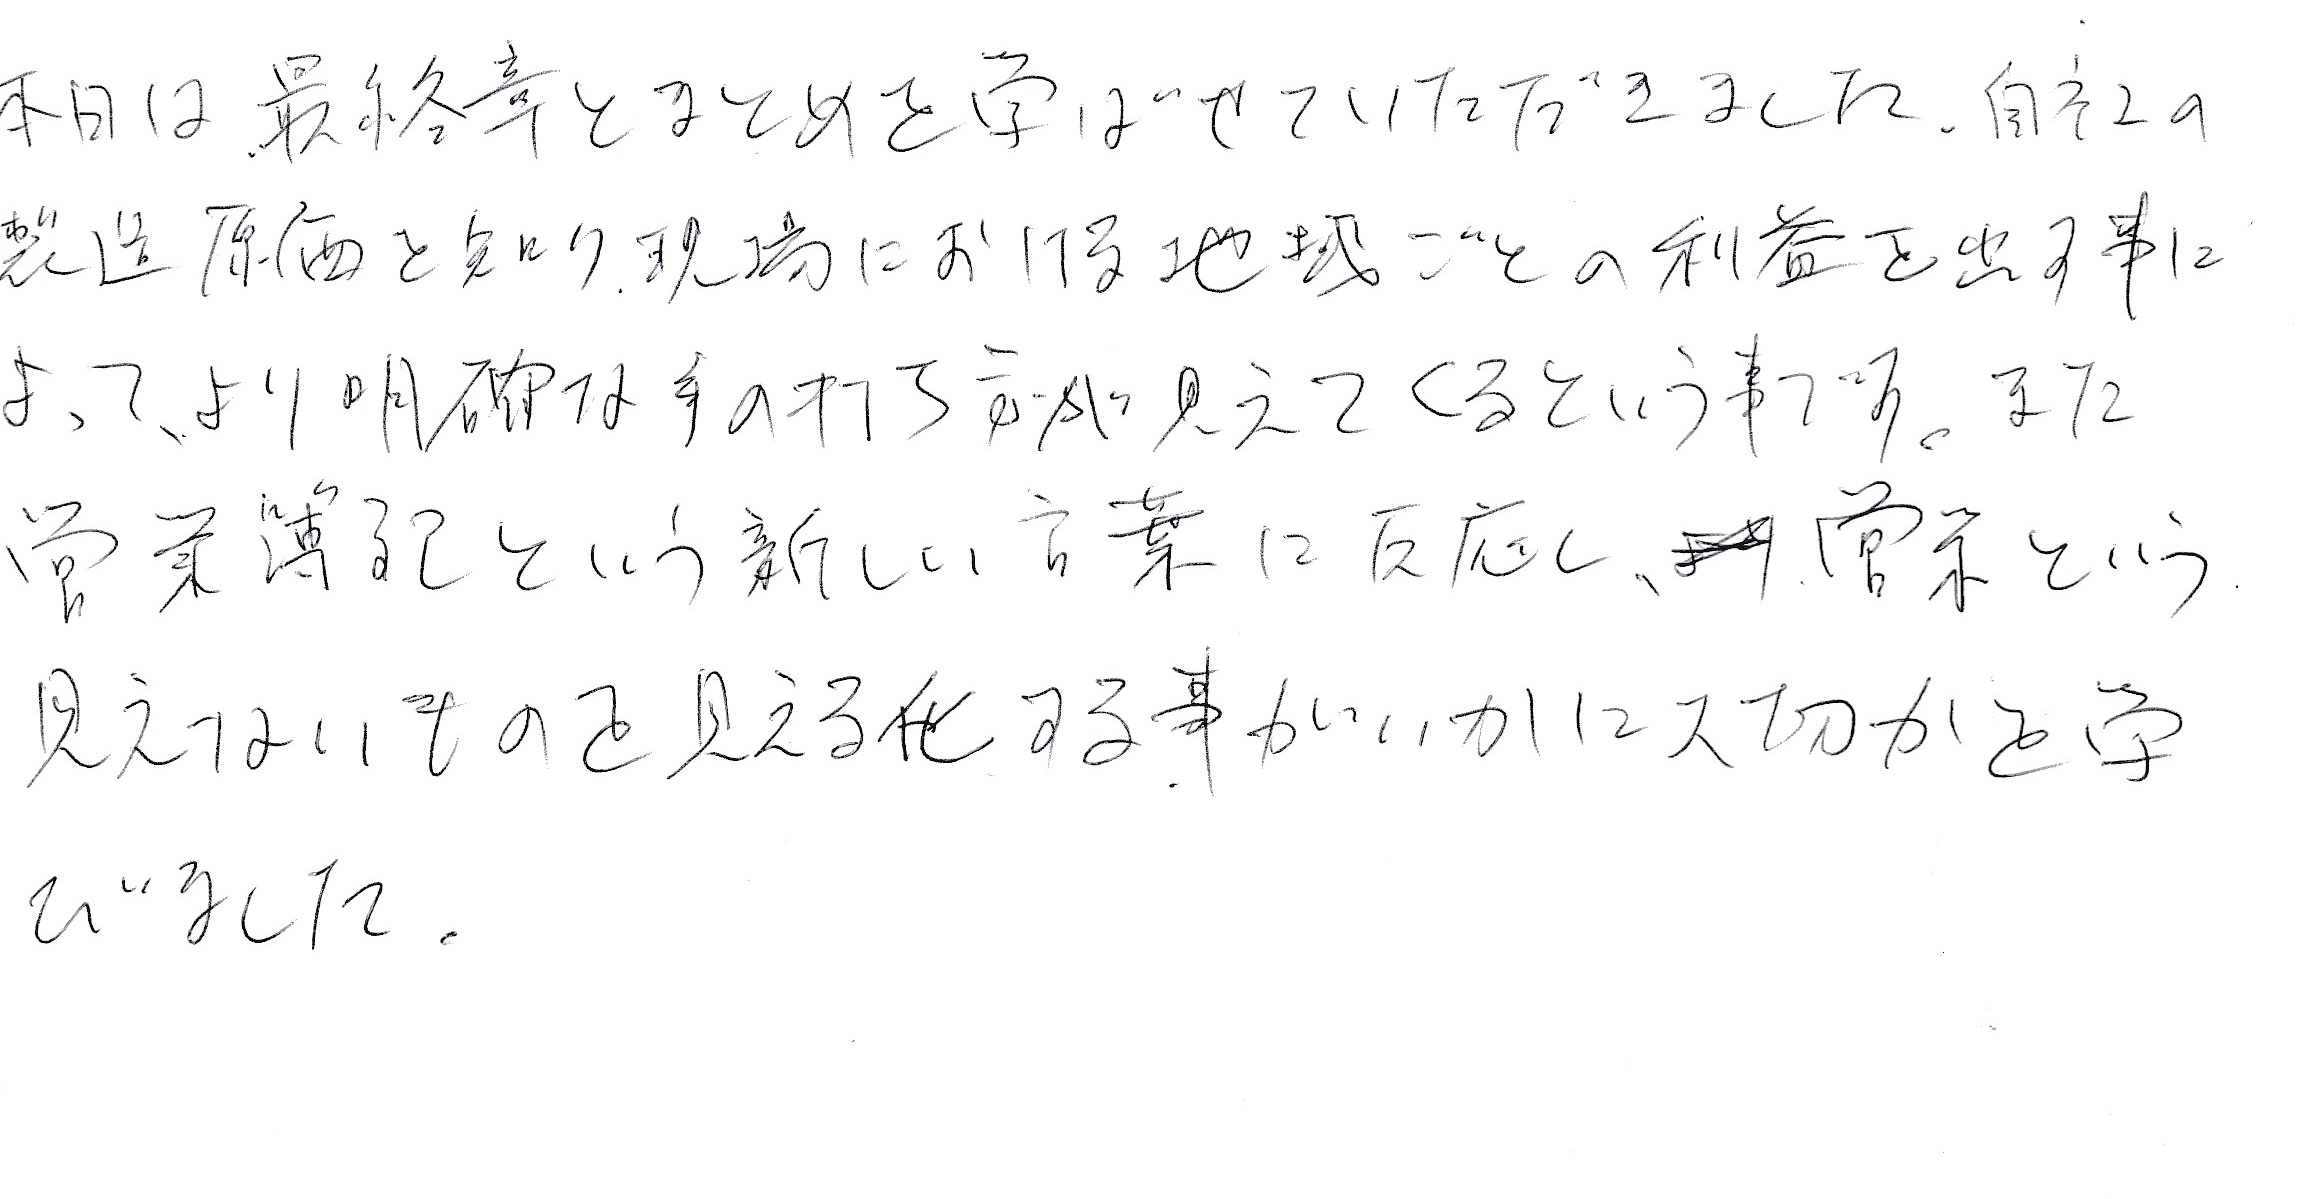 本日は、最終章とまとめを学ばせていただきました。自社の
製造原価を知り、現場における地域ごとの利益を出す事に
よって、より明確な手の打ち方が見えてくるという事です。また
営業簿記という新しい言葉に反応し、営業という
見えないものを見える化する事がいかに大切かを学
びました。